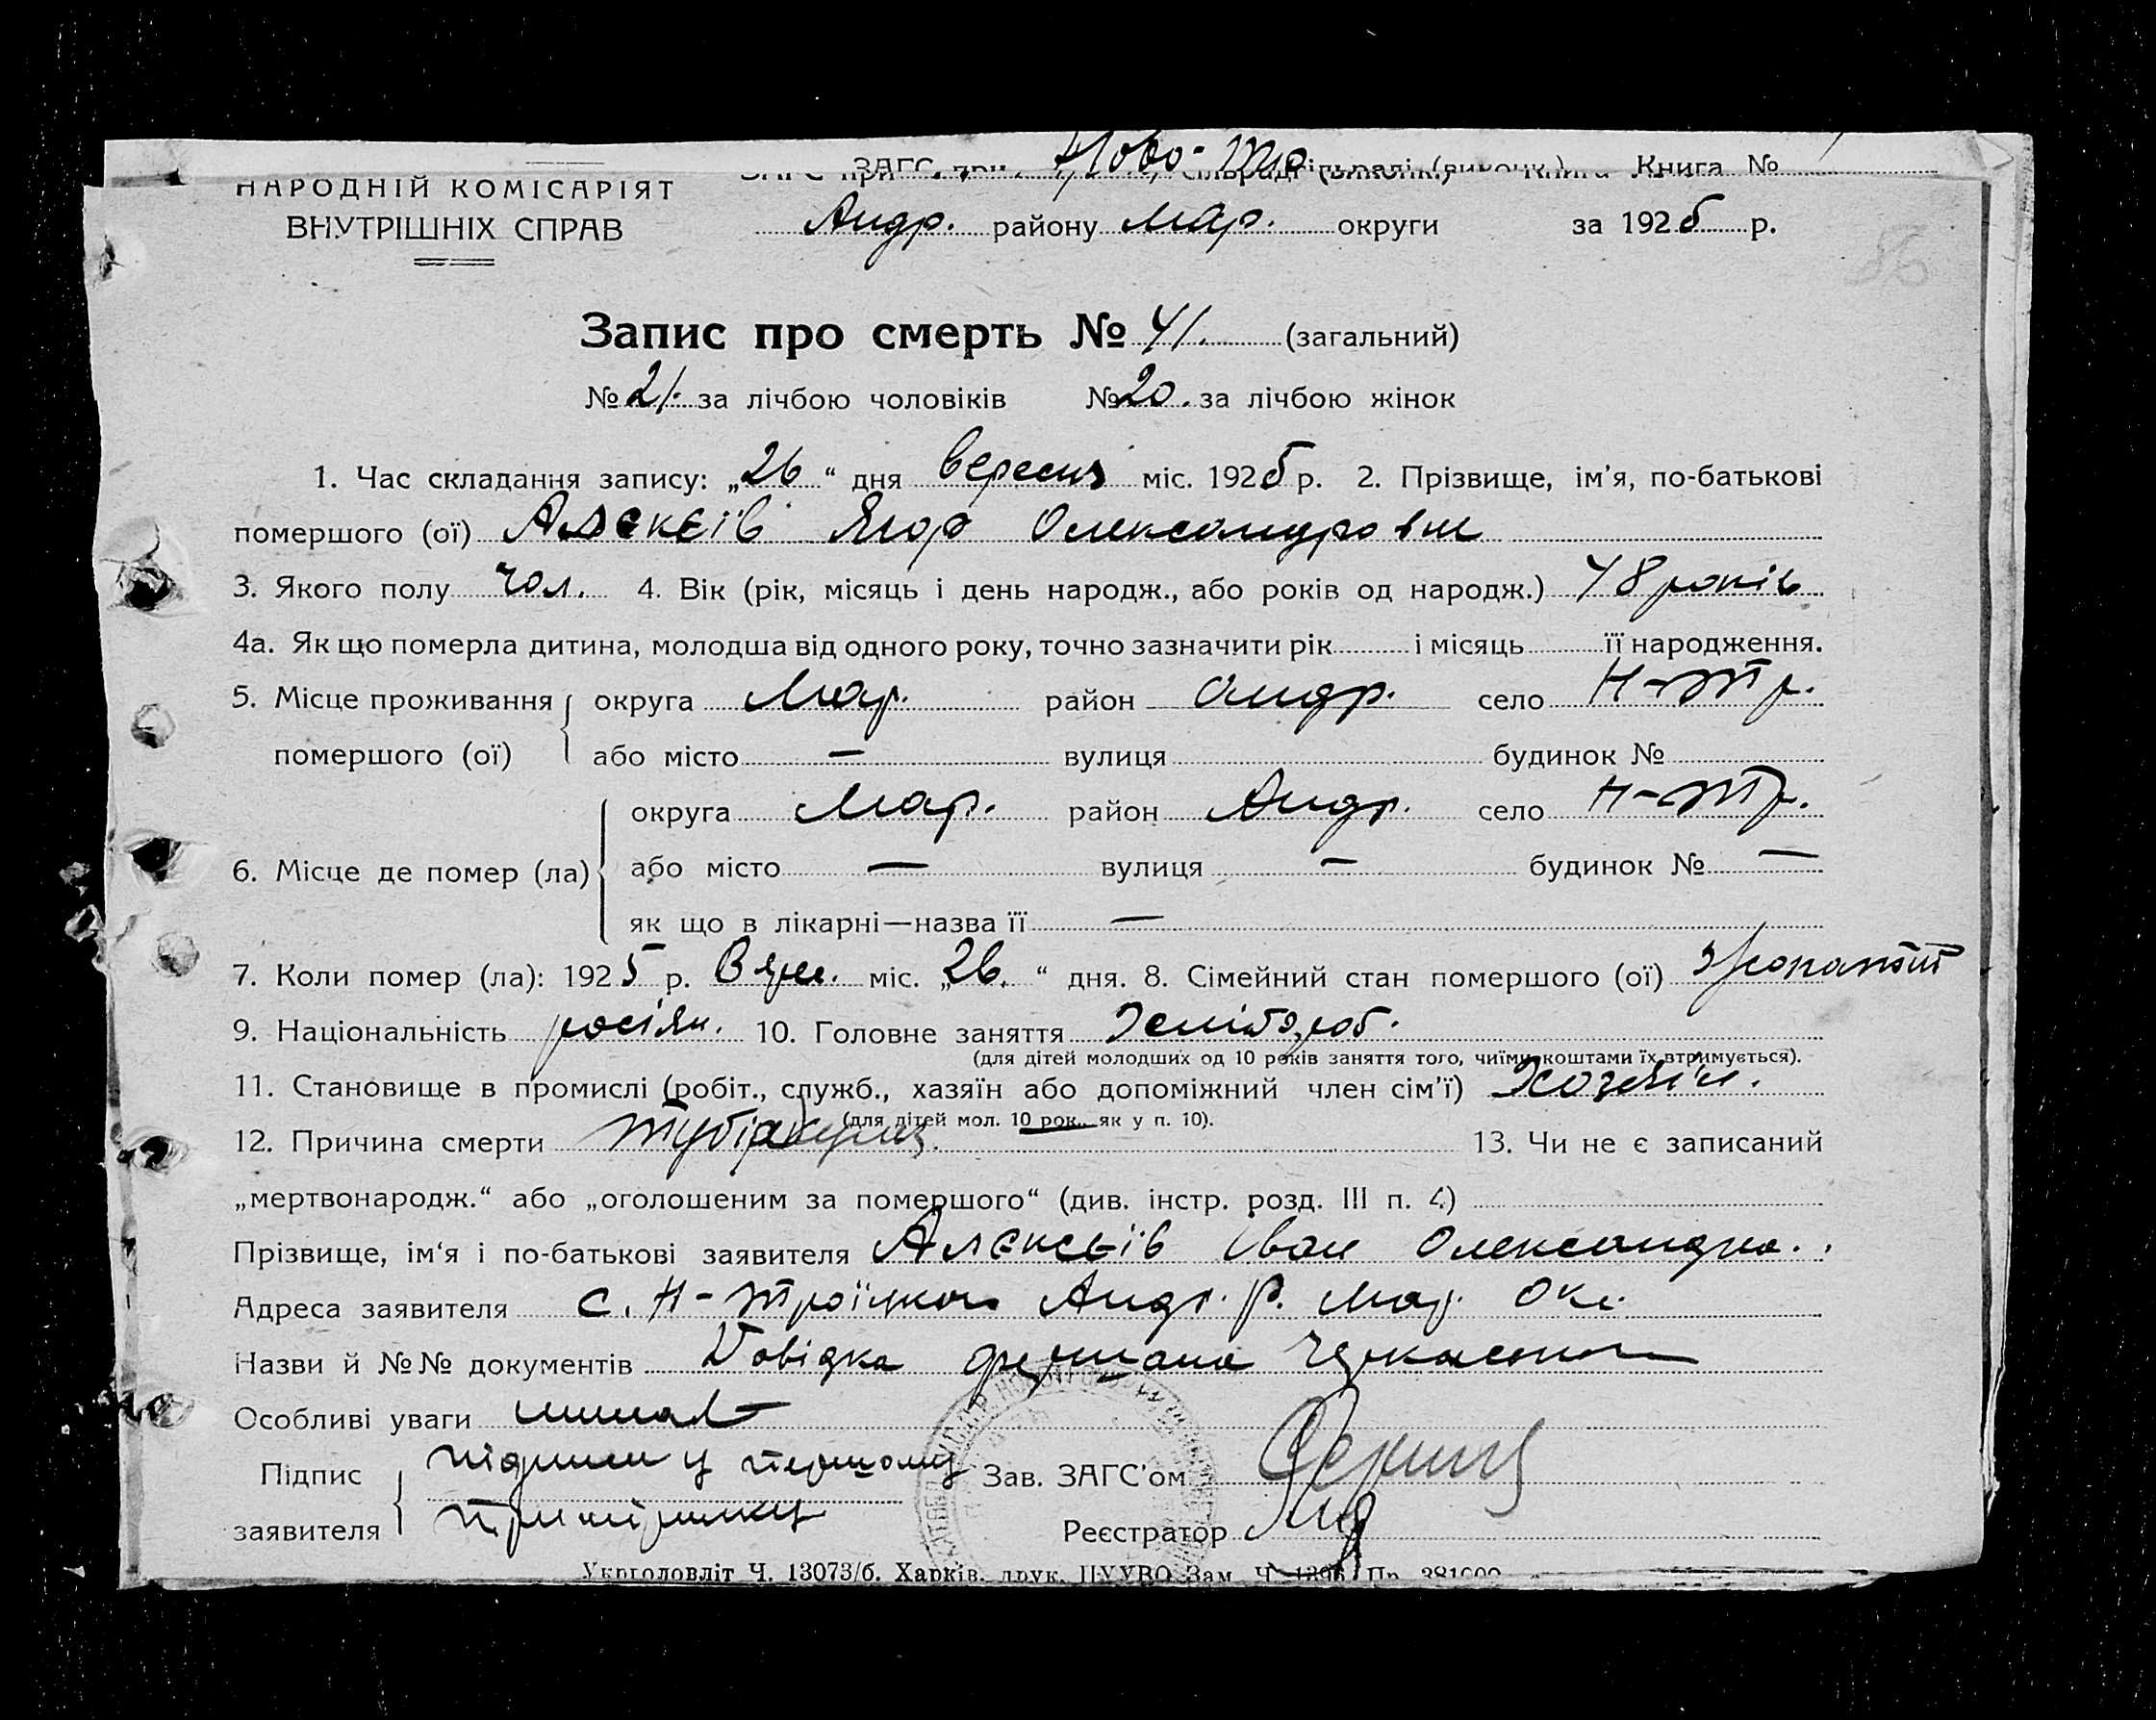 НАРОДНІЙ КОМІСАРІЯТ
ВНУТРІШНІХ СПРАВ
ЗАГС при Ново-Тро сільраді (виконк.) Книга №
Андр. району Мар. округи за 1925 р.
Запис про смерть № 41. (загальний)
№ 21. за лічбою чоловіків № 20. за лічбою жінок
1. Час складання запису: „26“ дня вересня міс. 1925 р. 2. Прізвище, ім’я, по-батькові
помершого (ої) Алєксєїв Ягор Олександрович
3. Якого полу чол. 4. Вік (рік, місяць і день народж., або років од народж.) 48 років
4а. Як що померла дитина, молодша від одного року, точно зазначити рік і місяць її народження.
5. Місце проживання помершого (ої) округа Мар. район Андр. село Н-Тр.
або місто — вулиця будинок №
6. Місце де помер (ла) округа Мар. район Андр. село Н-Тр.
або місто — вулиця — будинок № —
як що в лікарні—назва її —
7. Коли помер (ла): 1925 р. міс. „26.“ дня. 8. Сімейний стан помершого (ої) жонатий
9. Національність росіян. 10. Головне заняття
(для дітей молодших од 10 років заняття того, чиїми коштами їх втримується).
11. Становище в промислі (робіт., служб., хазяїн або допоміжний член сім’ї) Хозяїн.
(для дітей мол. 10 рок. як у п. 10).
12. Причина смерти 13. Чи не є записаний
„мертвонародж.“ або „оголошеним за помершого“ (див. інстр. розд. III п. 4)
Прізвище, ім‘я і по-батькові заявителя Алєксєїв Іван
Адреса заявителя с. Н-Троїцьком Андр. р. Мар. Окр.
Назви й №№ документів Довідка
Особливі уваги
Підпис заявителя підписи у першому
примірнику
Зав. ЗАГС’ом
Реєстратор
Укрголовліт Ч. 13073/б. Харків. друк. ЦУУВО Зам. Ч.